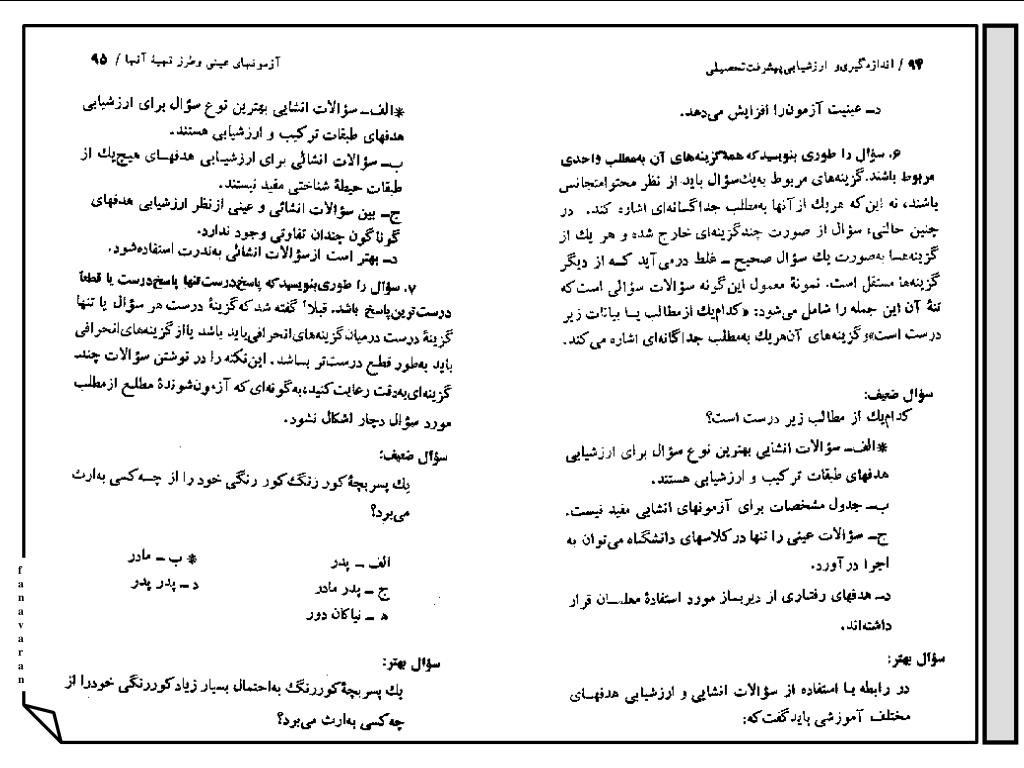 ۹۴ / اندازه‌گیری و ارزشیابی پیشرفت تحصیلی
د ــ عینیت آزمون را افزایش می‌دهد.
۶. سؤال را طوری بنویسید که همهٔ گزینه‌های آن به‌مطلب واحدی
مربوط باشند. گزینه‌های مربوط به‌یك سؤال باید از نظر محتوا متجانس
باشند، نه این که هر یك از آنها به‌مطلب جداگانه‌ای اشاره کند. در
چنین حالتی، سؤال از صورت چندگزینه‌ای خارج شده و هر یك از
گزینه‌ها به‌صورت یك سؤال صحیح ــ غلط درمی‌آید کــه از دیگر
گزینه‌ها مستقل است. نمونهٔ معمول این گونه سؤالات سؤالی است که
تنهٔ آن این جمله را شامل می‌شود: «کدام‌یك از مطالب یــا بیانات زیر
درست است» و گزینه‌های آن هریك به‌مطلب جداگانه‌ای اشاره می‌کند.
سؤال ضعیف:
کدام‌یك از مطالب زیر درست است؟
*الف‌ــ سؤالات انشایی بهترین نوع سؤال برای ارزشیابی
هدفهای طبقات ترکیب و ارزشیابی هستند.
ب‌ــ جدول مشخصات برای آزمونهای انشایی مفید نیست.
ج‌ــ سؤالات عینی را تنها در کلاسهای دانشگاه می‌توان به
اجرا درآورد.
د‌ــ هدفهای رفتاری از دیرباز مورد استفادهٔ معلمــان قرار
داشته‌اند.
سؤال بهتر:
در رابطه بــا استفاده از سؤالات انشایی و ارزشیابی هدفهــای
مختلف آموزشی باید گفت که:
آزمونهای عینی و طرز تهیهٔ آنها / ۹۵
*الف‌ــ سؤالات انشایی بهترین نوع سؤال برای ارزشیابی
هدفهای طبقات ترکیب و ارزشیابی هستند.
ب‌ــ سؤالات انشائی برای ارزشیابی هدفهــای هیچ‌یك از
طبقات حیطهٔ شناختی مفید نیستند.
ج‌ــ بین سؤالات انشائی و عینی از نظر ارزشیابی هدفهای
گوناگون چندان تفاوتی وجود ندارد.
د‌ــ بهتر است از سؤالات انشائی به‌ندرت استفاده شود.
۷. سؤال را طوری بنویسید که پاسخ درست تنها پاسخ درست یا قطعاً
درست‌ترین پاسخ باشد. قبلاً گفته شد که گزینهٔ درست هر سؤال یا تنها
گزینهٔ درست درمیان گزینه‌های انحرافی باید باشد یا از گزینه‌های انحرافی
باید به‌طور قطع درست‌تر بــاشد. این نکته را در نوشتن سؤالات چند
گزینه‌ای به‌دقت رعایت کنید، به‌گونه‌ای که آزمون‌شوندهٔ مطلع از مطلب
مورد سؤال دچار اشکال نشود.
سؤال ضعیف:
یك پسر بچهٔ کور رنگ کور رنگی خود را از چــه کسی به‌ارث
می‌برد؟
الف ــ پدر * ب ــ مادر
ج ــ پدر مادر د ــ پدر پدر
ه ــ نیاکان دور
سؤال بهتر:
یك پسر بچهٔ کوررنگ به‌احتمال بسیار زیاد کوررنگی خود را از
چه کسی به‌ارث می‌برد؟
fanavaran